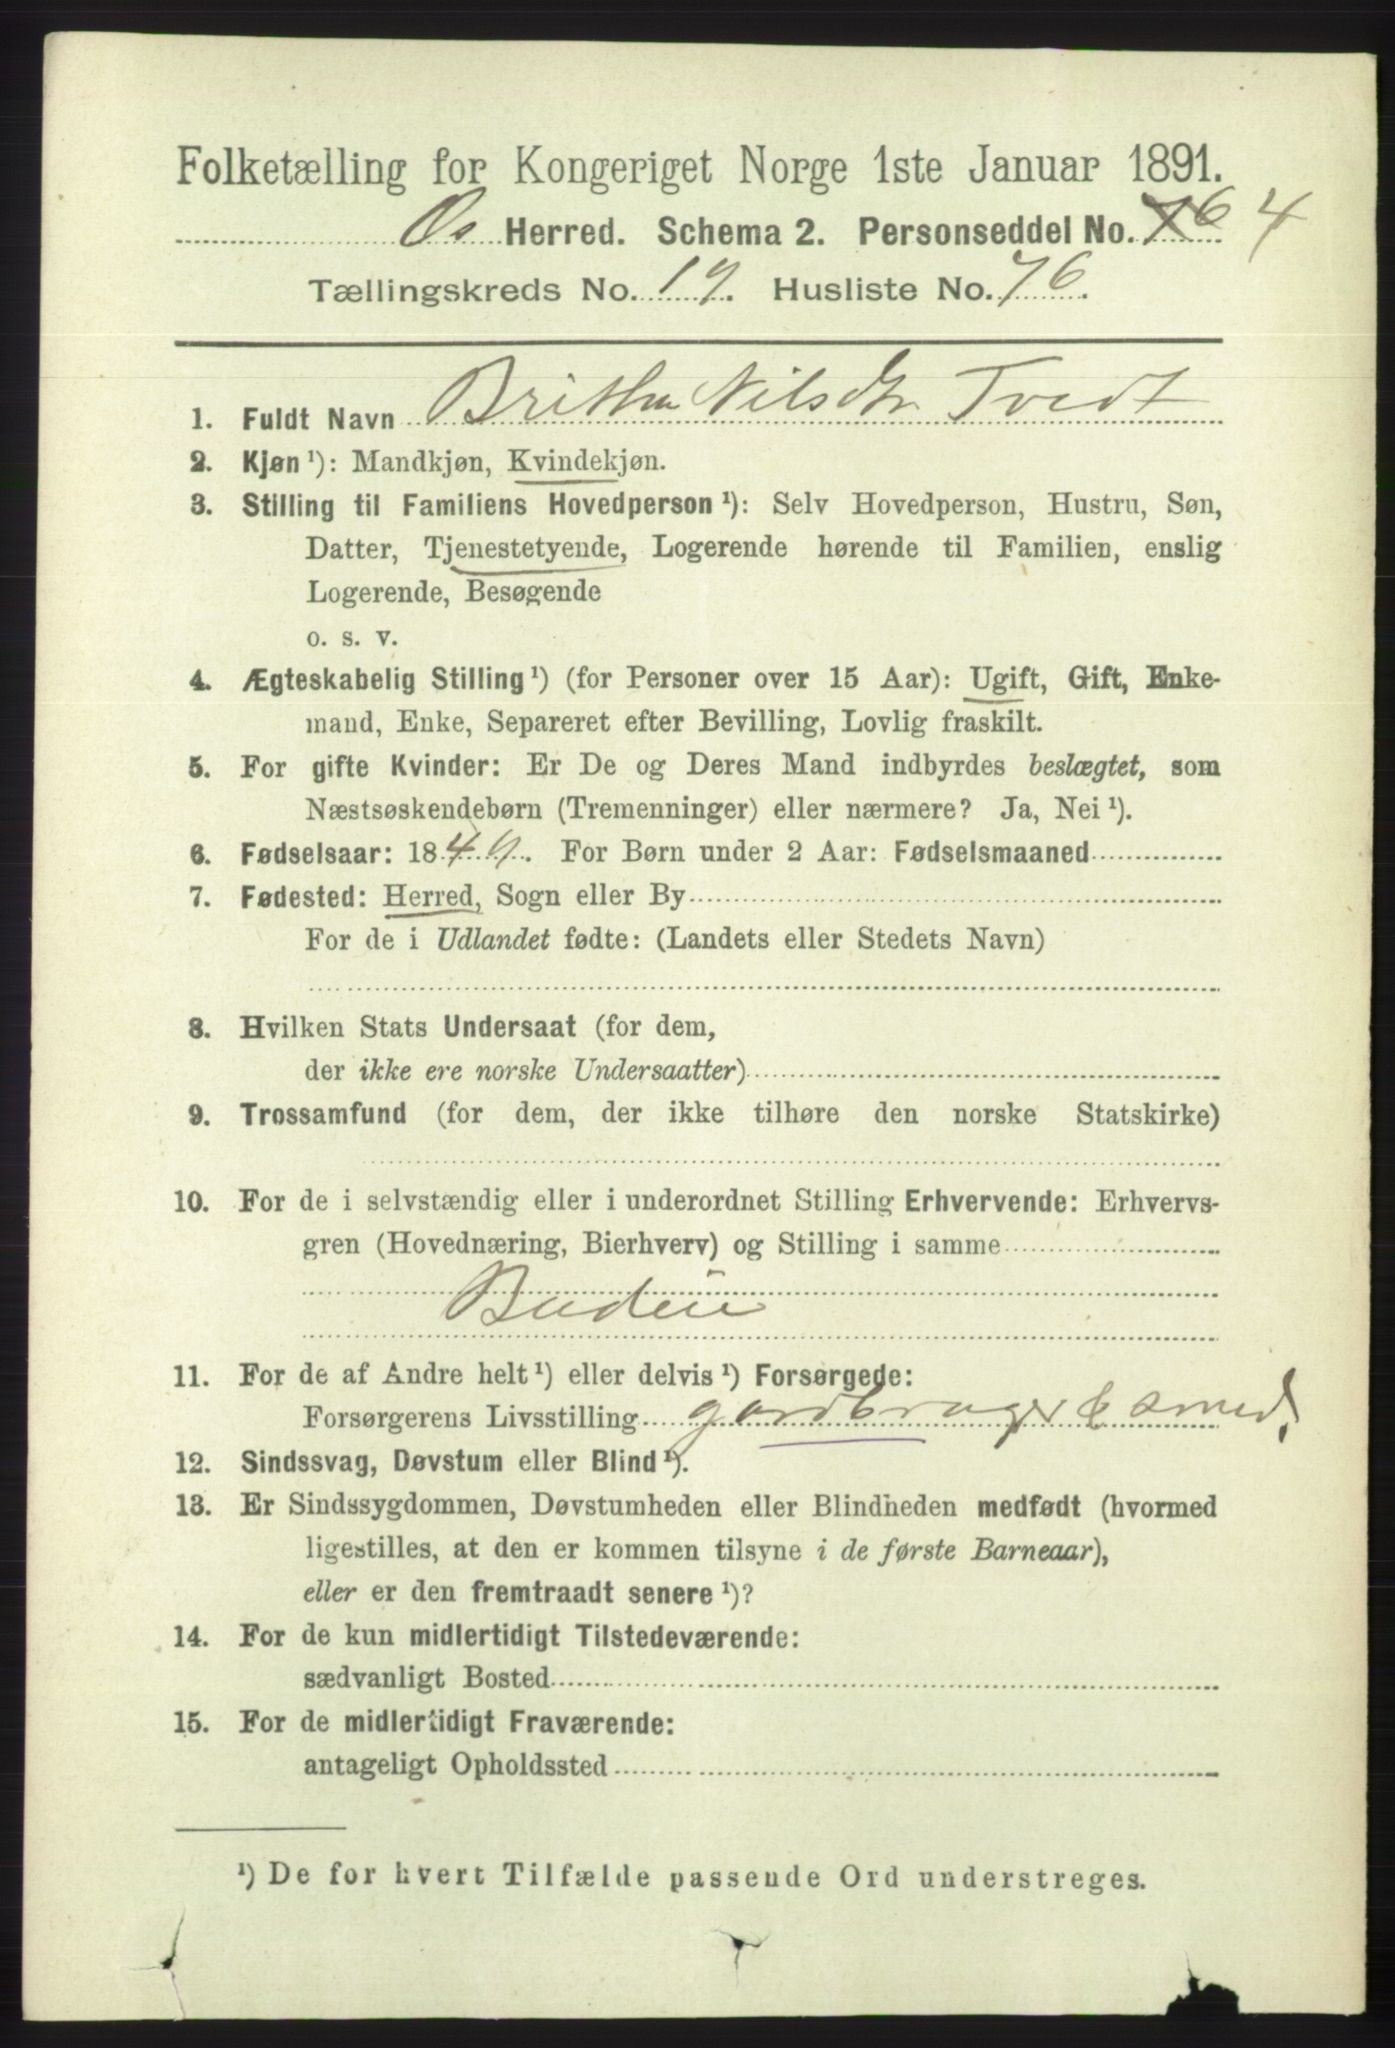 Folketælling for Kongeriget Norge 1ste Januar 1891.
Os Herred. Schema 2. Personseddel No. 76 4
Tællingskreds No. 19. Husliste No. 76.
1. Fuldt Navn Britha Nilsdtr Tvedt
2. Kjøn ¹): Mandkjøn, Kvindekjøn.
3. Stilling til Familiens Hovedperson ¹): Selv Hovedperson, Hustru, Søn,
Datter, Tjenestetyende, Logerende hørende til Familien, enslig
Logerende, Besøgende
o. s. v.
4. Ægteskabelig Stilling ¹) (for Personer over 15 Aar): Ugift, Gift, Enke-
mand, Enke, Separeret efter Bevilling, Lovlig fraskilt.
5. For gifte Kvinder: Er De og Deres Mand indbyrdes beslægtet, som
Næstsøskendebørn (Tremenninger) eller nærmere? Ja, Nei ¹).
6. Fødselsaar: 1849. For Børn under 2 Aar: Fødselsmaaned
7. Fødested: Herred, Sogn eller By
For de i Udlandet fødte: (Landets eller Stedets Navn)
8. Hvilken Stats Undersaat (for dem,
der ikke ere norske Undersaatter)
9. Trossamfund (for dem, der ikke tilhøre den norske Statskirke)
10. For de i selvstændig eller i underordnet Stilling Erhvervende: Erhvervs-
gren (Hovednæring, Bierhverv) og Stilling i samme
Budeie
11. For de af Andre helt ¹) eller delvis ¹) Forsørgede:
Forsørgerens Livsstilling gardbruger & smed,
12. Sindssvag, Døvstum eller Blind ¹).
13. Er Sindssygdommen, Døvstumheden eller Blindheden medfødt (hvormed
ligestilles, at den er kommen tilsyne i de første Barneaar),
eller er den fremtraadt senere ¹)?
14. For de kun midlertidigt Tilstedeværende:
sædvanligt Bosted
15. For de midlertidigt Fraværende:
antageligt Opholdssted
¹) De for hvert Tilfælde passende Ord understreges.